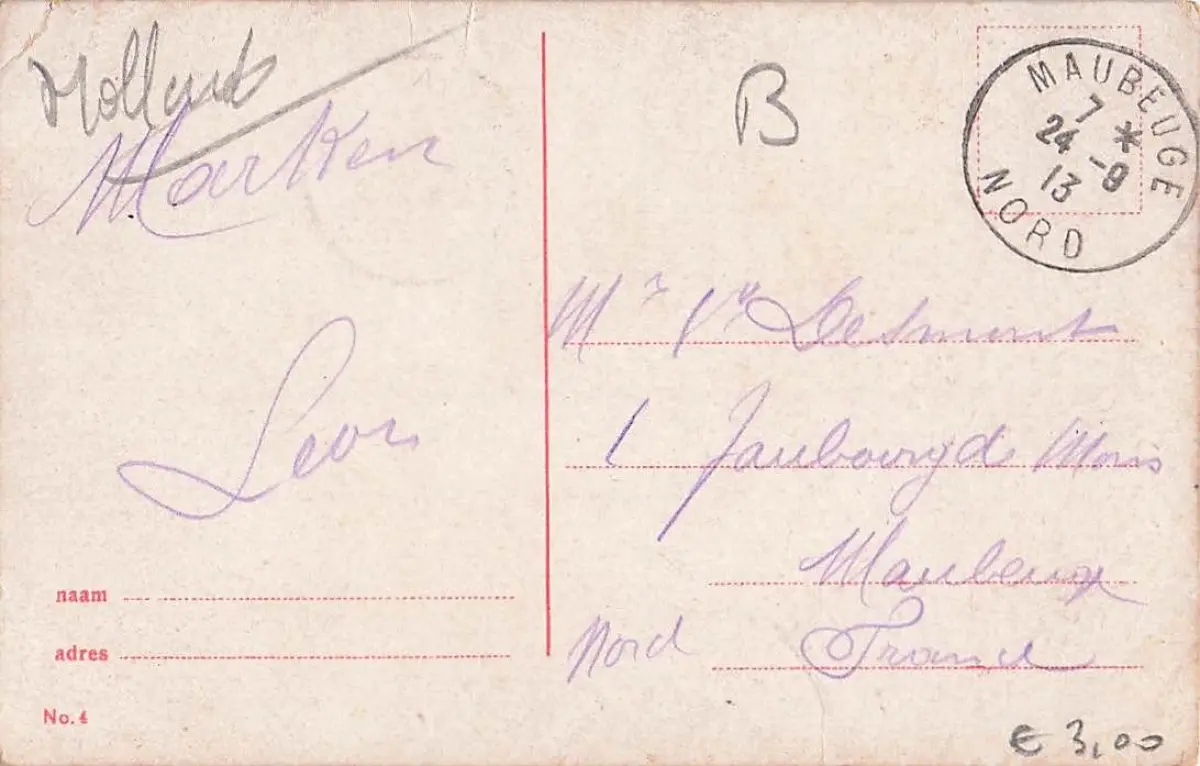 Holland
Marken
Leon
naam
adres
No. 4
B
MAUBEUGE
7 *
24 -9
13
NORD
Mr Vr Desmont
1 Faubourg de Mons
Maubeuge
Nord France
€ 3,00